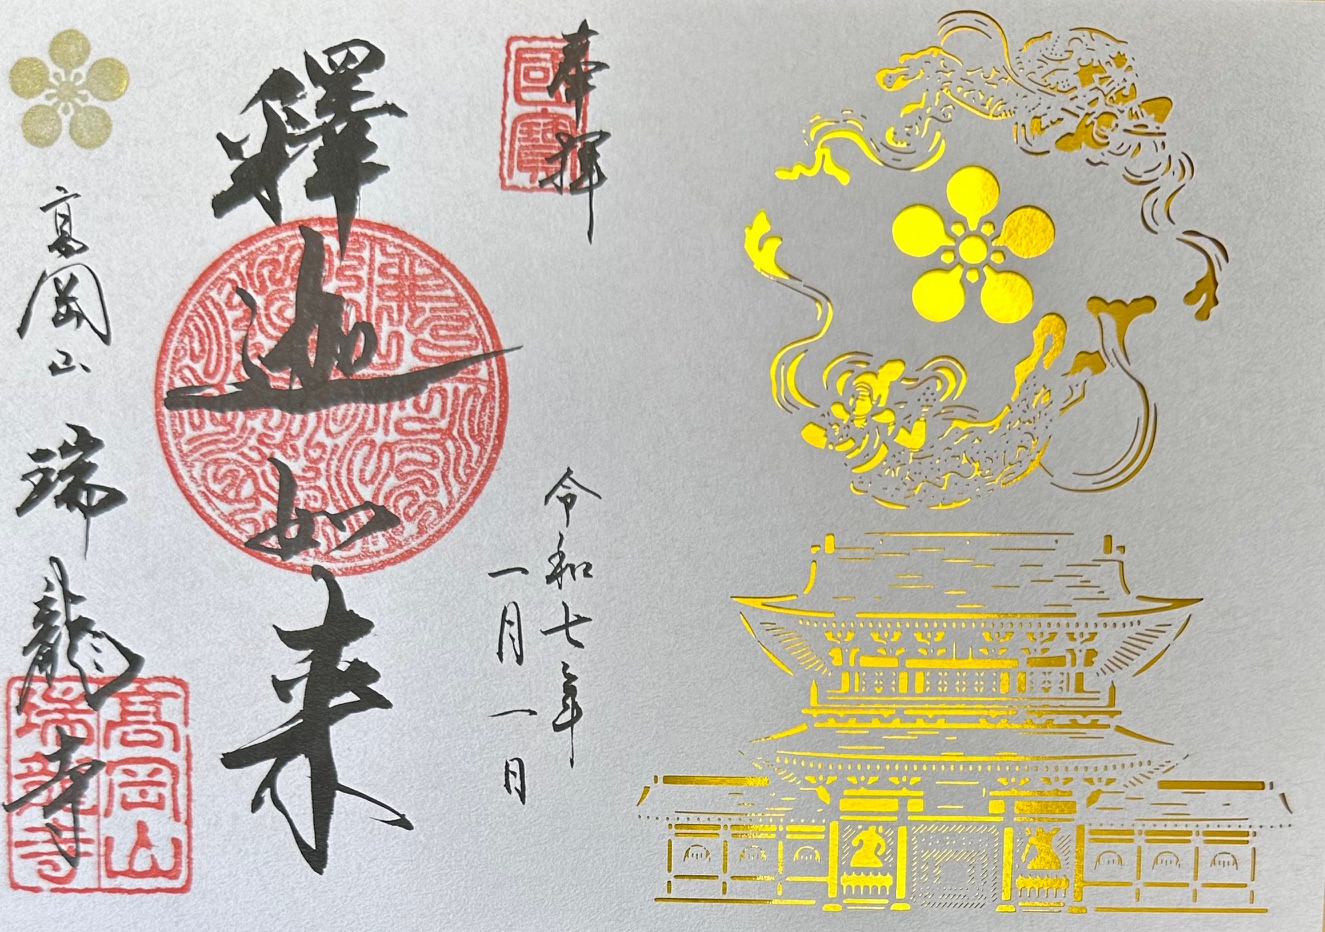 奉拝
國寶
令和七年
一月一日
釋迦如来
高岡山
瑞龍寺
高岡山
瑞龍寺